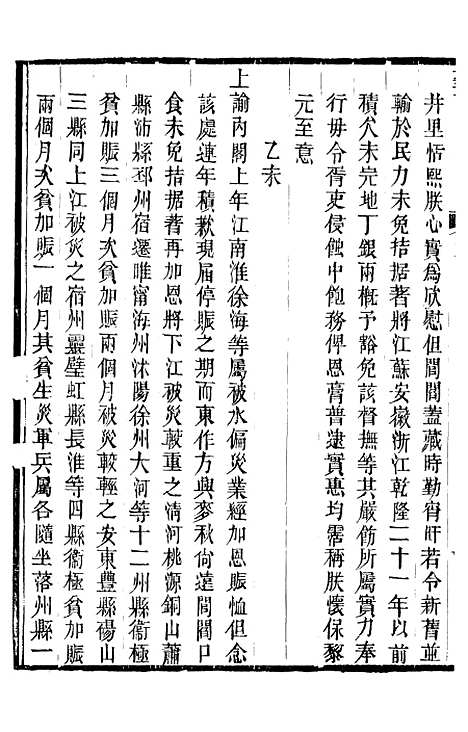 井里恬熙朕心實爲欣慰但閭閻蓋藏時勤宵旰若令新舊並
輸於民力未免拮据著將江蘇安徽浙江乾隆二十一年以前
積欠未完地丁銀兩概予豁免該督撫等其嚴飭所屬實力奉
行毋令胥吏侵蝕中飽務俾恩膏普逮實惠均霑稱朕懷保黎
元至意
乙未
上諭內閣上年江南淮徐海等屬被水偏災業經加恩賑恤但念
該處連年積歉現屆停賑之期而東作方興麥秋尙遠閭閻口
食未免拮据著再加恩將下江被災較重之清河桃源銅山蕭
縣沛縣邳州宿遷睢甯海州沭陽徐州大河等十二州縣衞極
貧加賑三個月次貧加賑兩個月被災較輕之安東豐縣碭山
三縣同上江被災之宿州靈璧虹縣長淮等四縣衞極貧加賑
兩個月次貧加賑一個月其貧生災軍兵屬各隨坐落州縣一